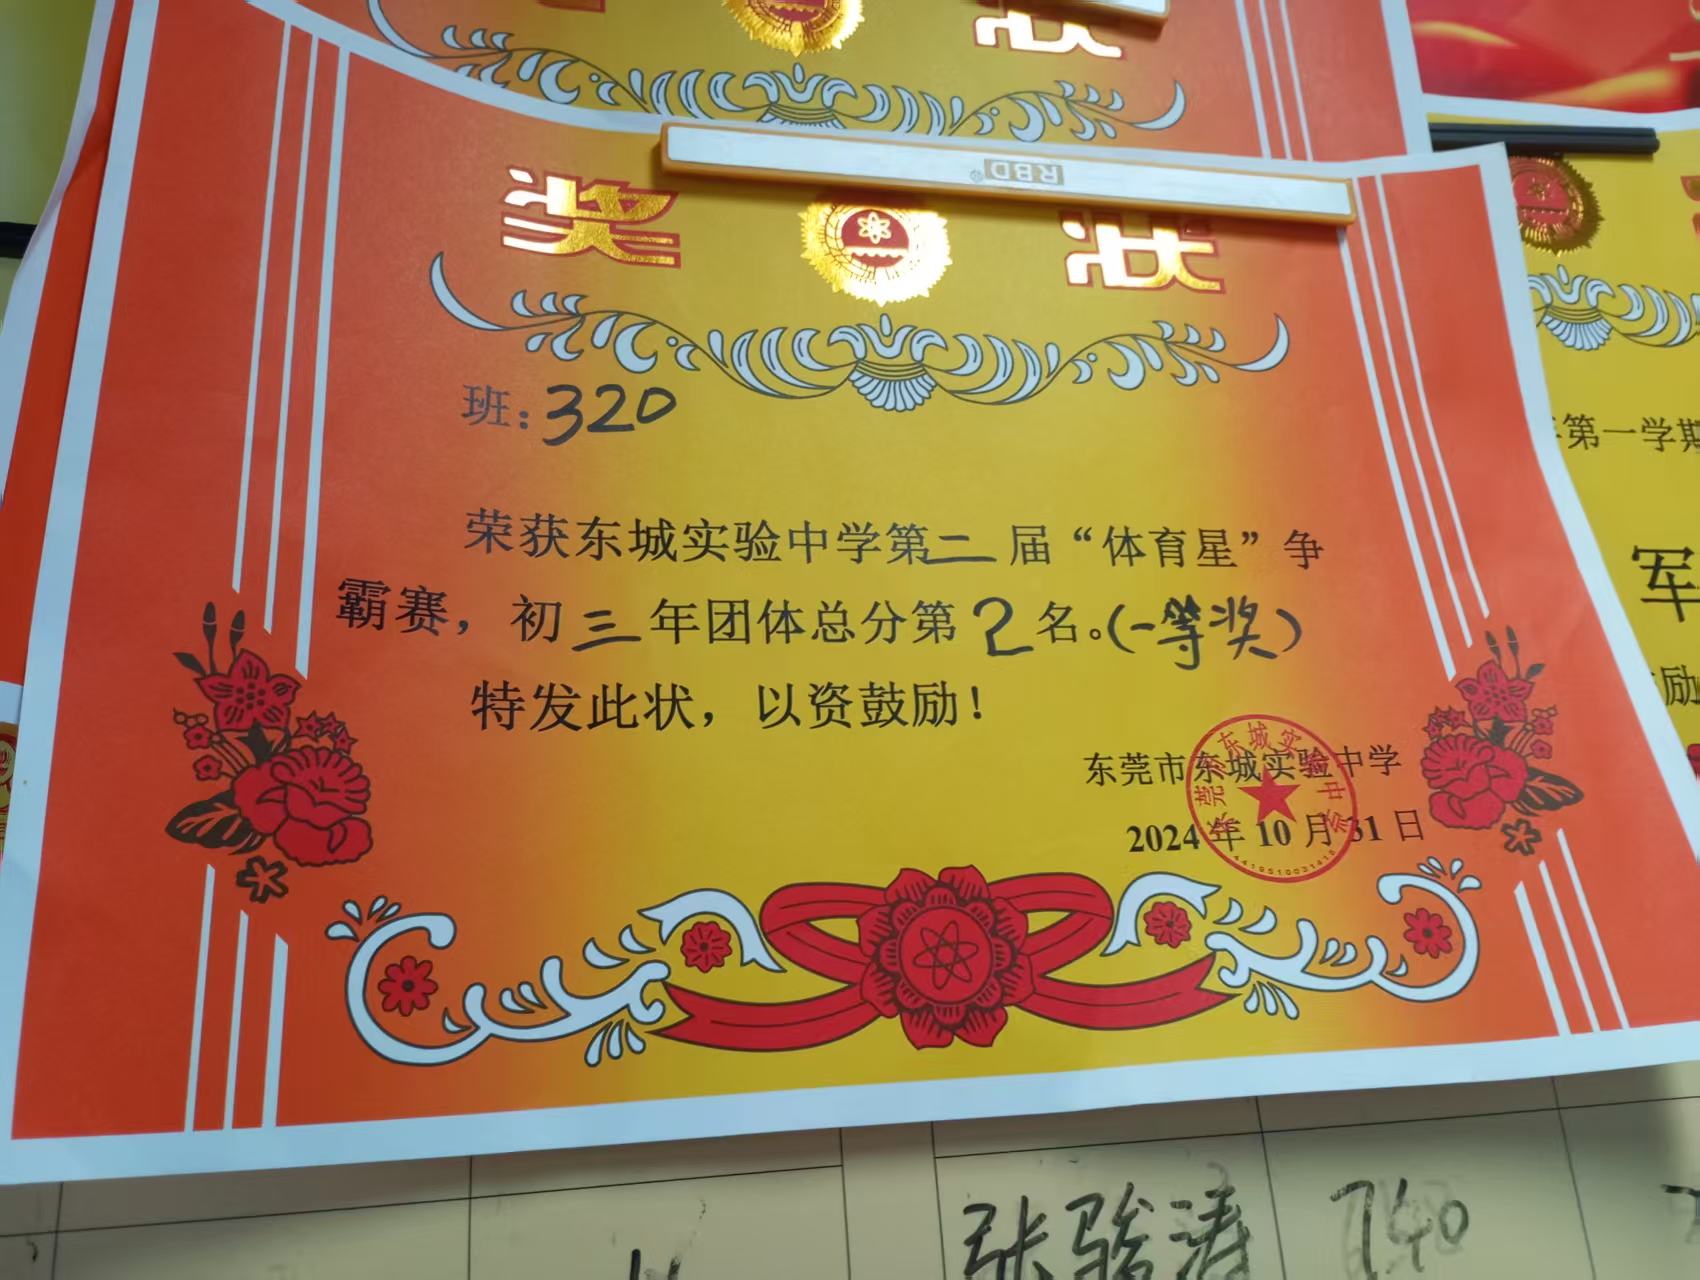 状
RBD
奖 状
班：320
荣获东城实验中学第二届“体育星”争
霸赛，初三年团体总分第2名。(一等奖)
特发此状，以资鼓励！
东莞市东城实验中学
2024年10月31日
第一学期
军
励
张骏涛 740